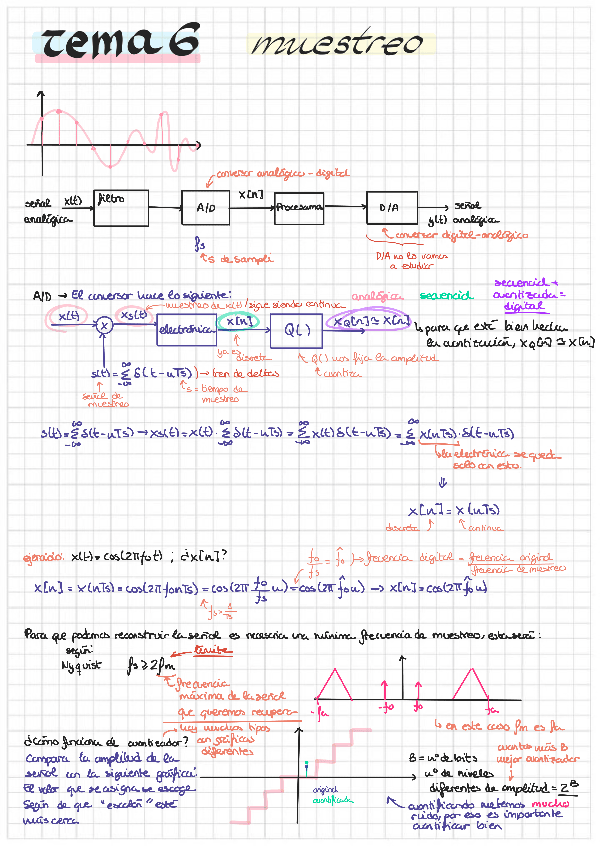 tema 6 muestreo
conversor analógico - digital
señal analógica x(t) filtro A/D x[n] Procesama D/A señal y(t) analógica
fs
conversor digital-analógico
↳ s de sample
D/A no lo vamos a estudiar
A/D → El conversor hace lo siguiente: analógica secuencial secuencial + cuantizada = digital
muestras de x(t) / sigue siendo continua
x(t) x xs(t) electrónica x[n] Q( ) xQ[n] ≅ x[n]
↳ para que esté bien hecha la cuantización, xQ[n] ≅ x[n]
ya es discreta
Q( ) nos fija la amplitud
↑ cuantiza
s(t) = Σ δ(t-nTs) → tren de deltas
señal de muestreo
Ts = tiempo de muestreo
s(t) = Σ δ(t-nTs) → xs(t) = x(t) · Σ δ(t-nTs) = Σ x(t) δ(t-nTs) = Σ x(nTs) · δ(t-nTs)
↳ la electrónica se queda solo con esto
⇓
x[n] = x(nTs)
discreta continua
ejercicio: x(t) = cos(2πf₀t) ; ¿x[n]?
f₀/fs = f̂₀ → frecuencia digital = frecuencia original / frecuencia de muestreo
x[n] = x(nTs) = cos(2πf₀nTs) = cos(2π f₀/fs n) = cos(2π f̂₀ n) → x[n] = cos(2π f̂₀ n)
Para que podamos reconstruir la señal es necesaria una mínima frecuencia de muestreo, esta será:
según Nyquist fs ≥ 2fm
límite
↳ frecuencia máxima de la señal que queremos recuperar
-fa -f₀ f₀ fa
↳ en este caso fm es fa
hay muchos tipos con gráficas diferentes
¿Cómo funciona de cuantizador?
Compara la amplitud de la señal con la siguiente gráfica:
El valor que se asigna se escoge según de que "escalón" esté más cerca.
original
cuantificada
cuantos más B mejor cuantizador
B = nº de bits
nº de niveles diferentes de amplitud = 2^B
cuantificando metemos mucho ruido, por eso es importante cuantificar bien